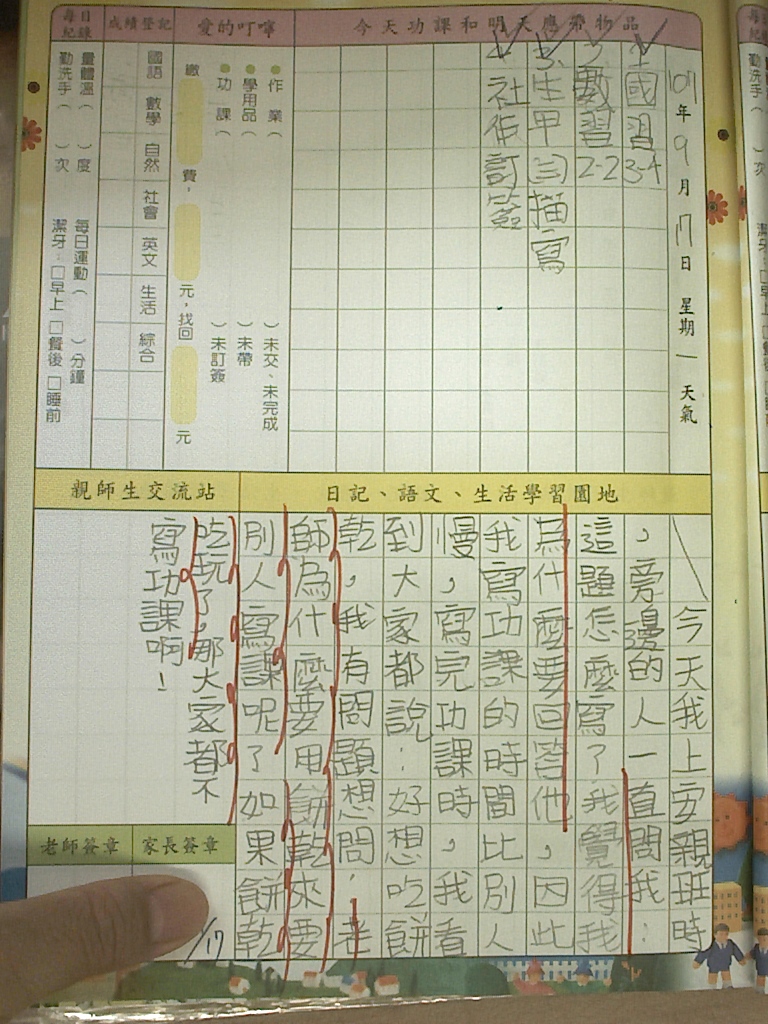 今天功課和明天應帶物品
107年9月17日 星期一 天氣
國習3-4
數習2-2
生甲㊂描寫
社作訂簽
愛的叮嚀
作業（ ）未交、未完成
學用品（ ）未帶
功課（ ）未訂簽
繳 費， 元，找回 元
成績登記
國語 數學 自然 社會 英文 生活 綜合
每日紀錄
量體溫（ ）度 每日運動（ ）分鐘
勤洗手（ ）次 潔牙：□早上 □餐後 □睡前
日記、語文、生活學習園地
今天我上安親班時
，旁邊的人一直問我：
這題怎麼寫了我覺得我
為什麼要回答他，因此
我寫功課的時間比別人
慢，寫完功課時，我看
到大家都說：好想吃餅
乾，我有問題想問，老
師為什麼要用餅乾來要
別人寫課呢了如果餅乾
吃玩了，那大家都不
寫功課啊！
親師生交流站
家長簽章
老師簽章
/17